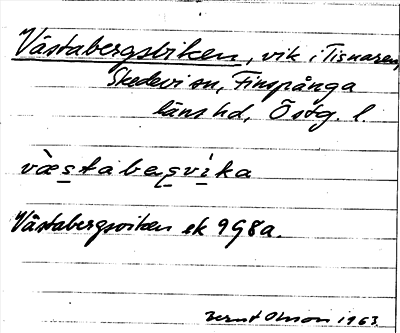 Västabergsviken, vik i Tisnaren,
Skedevi sn, Finspånga
läns hd, Östg. l.
væstabæsvika
Västabergsviken ek 9G8a.
Bernt Olsson 1963